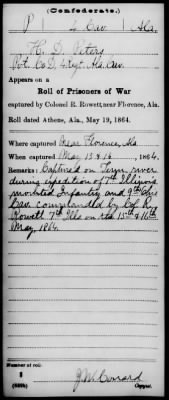 (Confederate.)
P 4 Cav. Ala.
H. D. Peters
Pvt. Co D, 4 Regt. Ala. Cav.
Appears on a
Roll of Prisoners of War
captured by Colonel R. Rowett, near Florence, Ala.
Roll dated Athens, Ala., May 19, 1864.
Where captured Near Florence, Ala
When captured May 15 & 16, 1864.
Remarks: Captured on Tenn river
during expedition of 7th Illinois
mounted Infantry and 9th Ohio
Cav. commanded by Col R.
Rowett 7th Ills on the 15th & 16th
May 1864.
Number of roll:
Copyist.